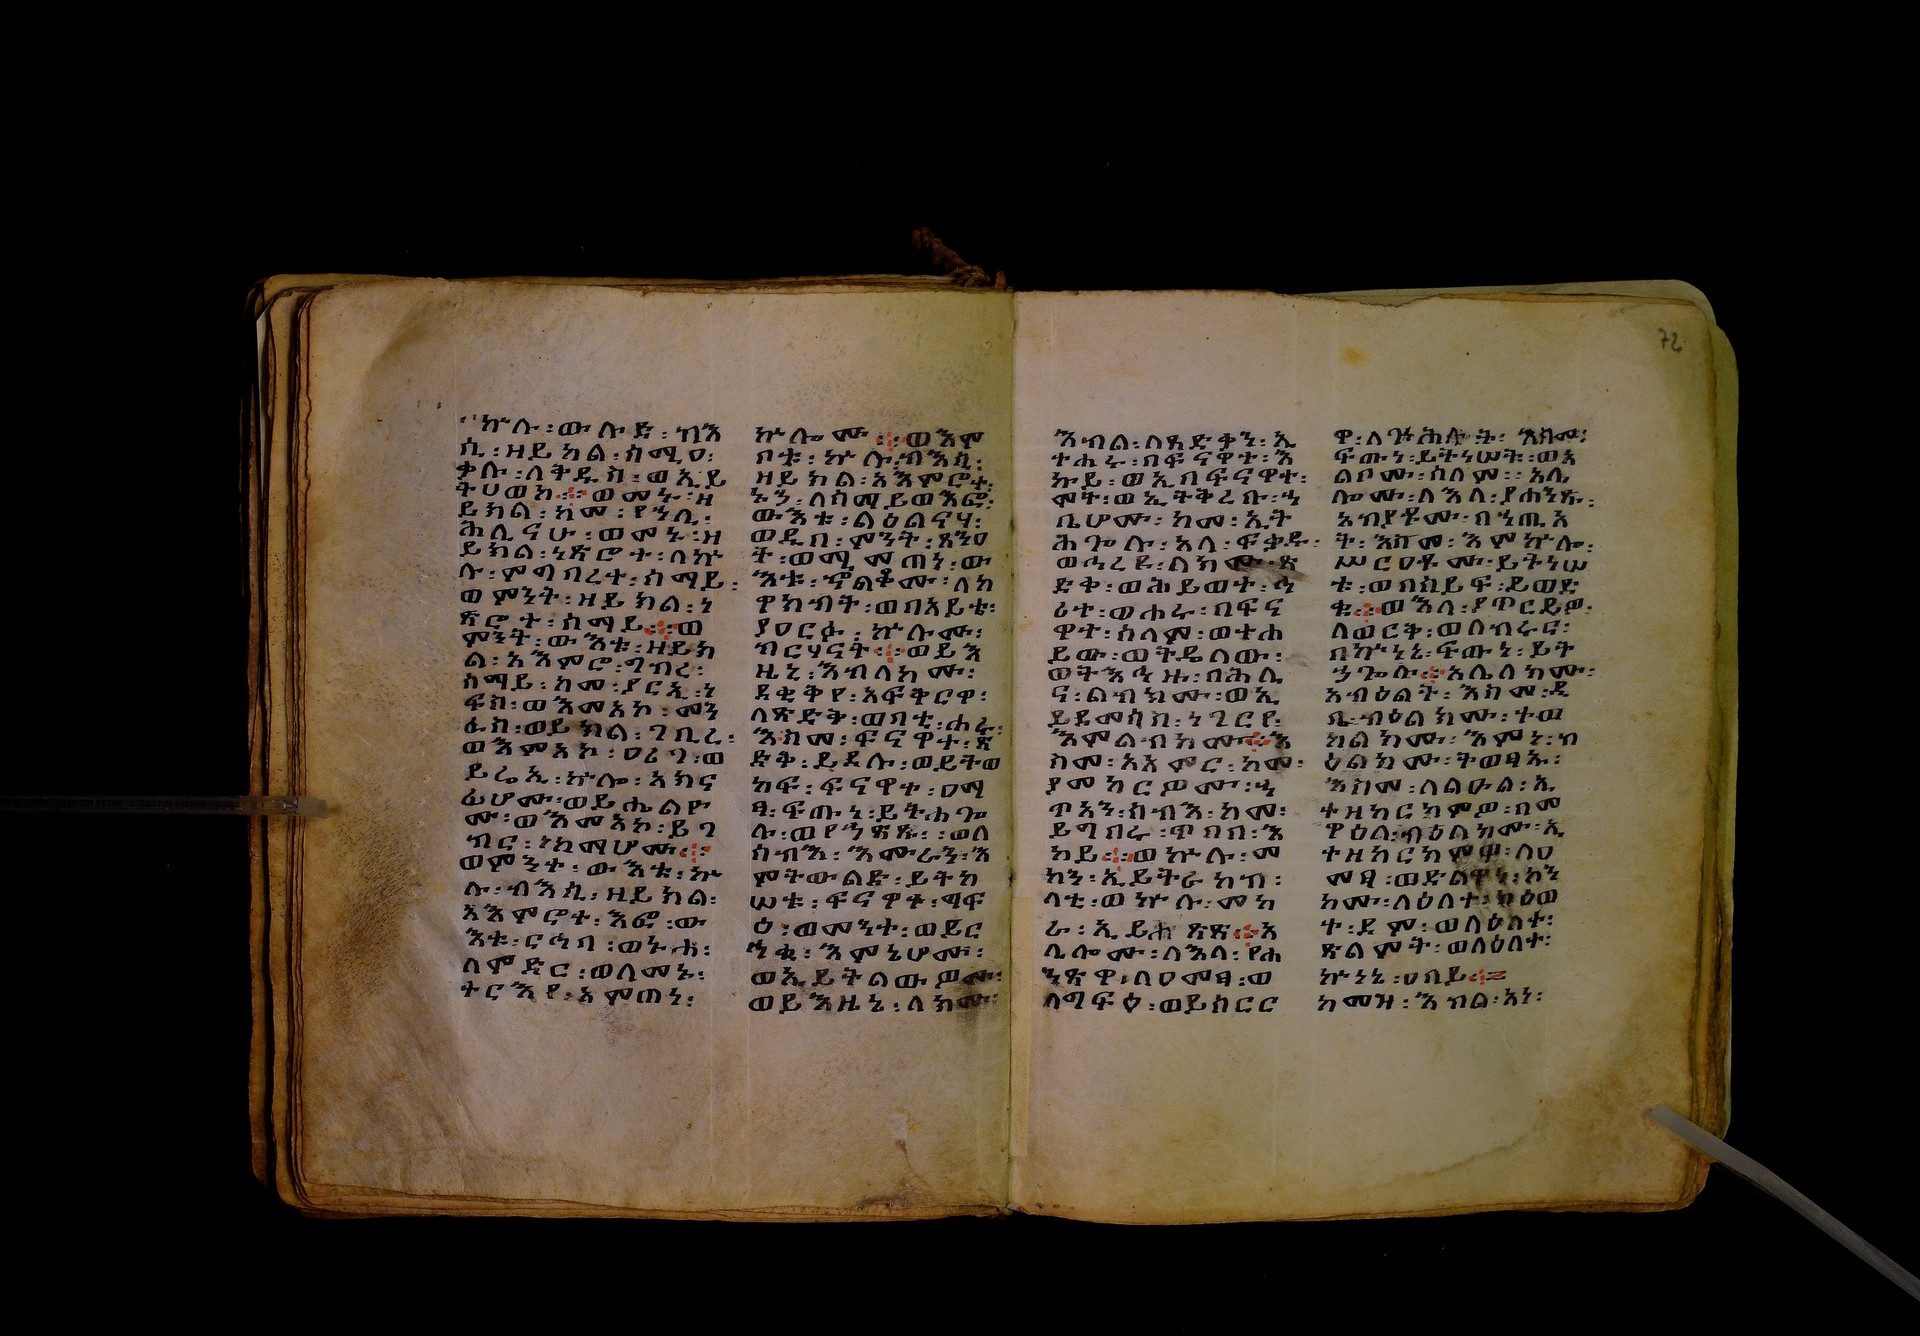 ኵሉ፡ውሉድ፡ብእ
ሲ፡ዘይክል፡ሰሚዐ፡
ቃሉ፡ለቅዱስ፡ወኢይ
ትሀወክ፨ወመኑ፡ዘ
ይክል፡ከመ፡የኀሊ፡
ሕሊናሁ፡ወመኑ፡ዘ
ይክል፡ነጽሮተ፡ለኵ
ሉ፡ምግባረተ፡ሰማይ፡
ወምንት፡ዘይክል፡ነ
ጽሮተ፡ሰማይ፨ወ
ምንት፡ውእቱ፡ዘይክ
ል፡አእምሮ፡ግብረ፡
ሰማይ፡ከመ፡ያርኢ፡ነ
ፍሰ፡ወእመአኮ፡መን
ፈሰ፡ወይክል፡ገቢረ፡
ወእምአኮ፡ዐሪገ፡ወ
ይሬኢ፡ኵሎ፡አክና
ፊሆሙ፡ወይሔልዮ
ሙ፡ወእመአኮ፡ይገ
ብር፡ከማሆሙ፨
ወምንት፡ውእቱ፡ኵ
ሉ፡ብእሲ፡ዘይክል፡
አእምሮተ፡እፎ፡ው
እቱ፡ርኅበ፡ወኑሐ፡
ለምድር፡ወለመኑ፡
ተርእየ፡አምጠነ፡
ኵሎሙ፨ወእም
ቦቱ፡ኵሉ፡ብእሲ፡
ዘይክል፡አእምሮተ፡
ኑኀ፡ለሰማይ፡ወእፎ፡
ውእቱ፡ልዕልናሃ፡
ወዲበ፡ምንት፡ጸንዐ
ት፡ወሚመጠነ፡ው
እቱ፡ኆልቆሙ፡ለከ
ዋክብት፡ወበአይቴ፡
ያዐርፉ፡ኵሉሙ፡
ብርሃናት፨ወይእ
ዜኒ፡እብለክሙ፡
ደቂቅየ፡አፍቅርዋ፡
ለጽድቅ፡ወባቲ፡ሖሩ፡
እስመ፡ፍናዋተ፡ጽ
ድቅ፡ይደሉ፡ወይትወ
ከፍ፡ፍናዋተ፡ዐማ
ፃ፡ፍጡነ፡ይትሐጐ
ሉ፡ወየኀጽጹ፡ወለ
ሰብእ፡እሙራን፡እ
ምትውልድ፡ይትከ
ሠቱ፡ፍናዋተ፡ግፍ
ዕ፡ወመንተ፡ወይር
ኅቁ፡እምኔሆሙ፡
ወኢይትልውዎሙ፡
ወይእዜኒ፡ለክሙ፡
እብል፡ለጻድቃን፡ኢ
ተሐሩ፡በፍናዋተ፡እ
ኩይ፡ወኢበፍናዋተ፡
ሞት፡ወኢትቅረቡ፡ኀ
ቤሆሙ፡ከመ፡ኢት
ሕጐሉ፡አላ፡ፍቃዱ፡
ወኅረዩ፡ለክሙ፡ጽ
ድቀ፡ወሕይወተ፡ኅ
ሪተ፡ወሐሩ፡በፍና
ዋተ፡ሰላም፡ወተሐ
ይው፡ወትዴለው፡
ወትእኅዙ፡በሕሊ
ና፡ልብክሙ፡ወኢ
ይደመሰስ፡ነገርየ፡
እምልብክሙ፨እ
ስመ፡አአምር፡ከመ፡
ያመክርዎሙ፡ኃ
ጥኣን፡ለሰብእ፡ከመ፡
ይግበሩ፡ጥበበ፡እ
ከይ፨ወኵሉ፡መ
ካን፡ኢይትረከብ፡
ላቲ፡ወኵሉ፡መከ
ራ፡ኢይሕጽጽ፨አ
ሌሎሙ፡ለእለ፡የሐ
ንጽዋ፡ለዐመፃ፡ወ
ለግፍዕ፡ወይሰርር
ዋ፡ለጕሕሉት፡እስመ፡
ፍጡነ፡ይትነሠት፡ወአ
ልቦሙ፡ሰላም፡አሌ
ሎሙ፡ለእለ፡ያሐንጹ፡
አብያቶሙ፡በኀጢአ
ት፡እስመ፡እምኵሎ፡
ሡርዐቶሙ፡ይትነሠ
ቱ፡ወበሰይፍ፡ይወድ
ቁ፨ወእለ፡ያጥርይዎ፡
ለወርቅ፡ወለብሩር፡
በኵነኔ፡ፍጡነ፡ይት
ኃጐሉ፨አሌለክሙ፡
አብዕልት፡እስመ፡ዲ
በ፡ብዕልክሙ፡ተወ
ከልክሙ፡እምነ፡ብ
ዕልክሙ፡ትወፅኡ፡
እስመ፡ለልዑል፡ኢ
ተዘከርክምዎ፡በመ
ዋዕለ፡ብዕለክሙ፡ኢ
ተዘከርክምዎ፡ለዐ
መፃ፡ወድልዋነ፡ኮን
ክሙ፡ለዕለተ፡ከዕወ
ተ፡ደም፡ወለዕለተ፡
ጽልመት፡ወለዕለተ፡
ኵነኔ፡ዐባይ፨
ከመዝ፡እብል፡አነ፡
72